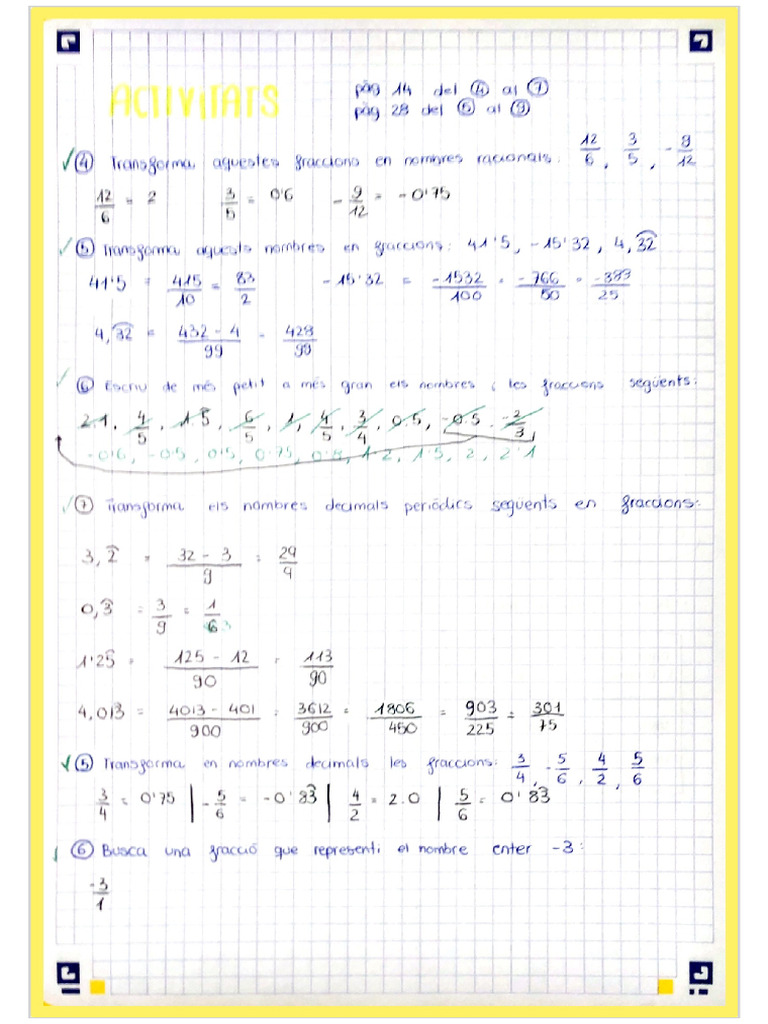 ACTIVITATS
pàg 14 del ④ al ⑦
pàg 28 del ⑤ al ⑨
✓④ Transforma aquestes fraccions en nombres racionals: 12/6, 3/5, -9/12
12/6 = 2 3/5 = 0'6 -9/12 = -0'75
✓⑤ Transforma aquests nombres en fraccions: 41'5, -15'32, 4,32
41'5 = 415/10 = 83/2 -15'32 = -1532/100 = -766/50 = -383/25
4,32 = 432 - 4/99 = 428/99
✓⑥ Escriu de més petit a més gran els nombres i les fraccions següents:
2.1, 4/5, 1'5, 6/5, 1, 4/5, 3/4, 0.5, -0.5, -2/3
-0'6, -0.5, 0'5, 0.75, 0.8, 1.2, 1.5, 2, 2.1
✓⑦ Transforma els nombres decimals periòdics seguents en fraccions:
3,2 = 32 - 3/9 = 29/9
0,3 = 3/9 = 1/6 3
1'25 = 125 - 12/90 = 113/90
4,013 = 4013 - 401/900 = 3612/900 = 1806/450 = 903/225 = 301/75
✓⑤ Transforma en nombres decimals les fraccions: 3/4, -5/6, 4/2, 5/6
3/4 = 0'75 | -5/6 = -0'83 | 4/2 = 2.0 | 5/6 = 0'83
✓⑥ Busca una fracció que representi el nombre enter -3:
-3/1